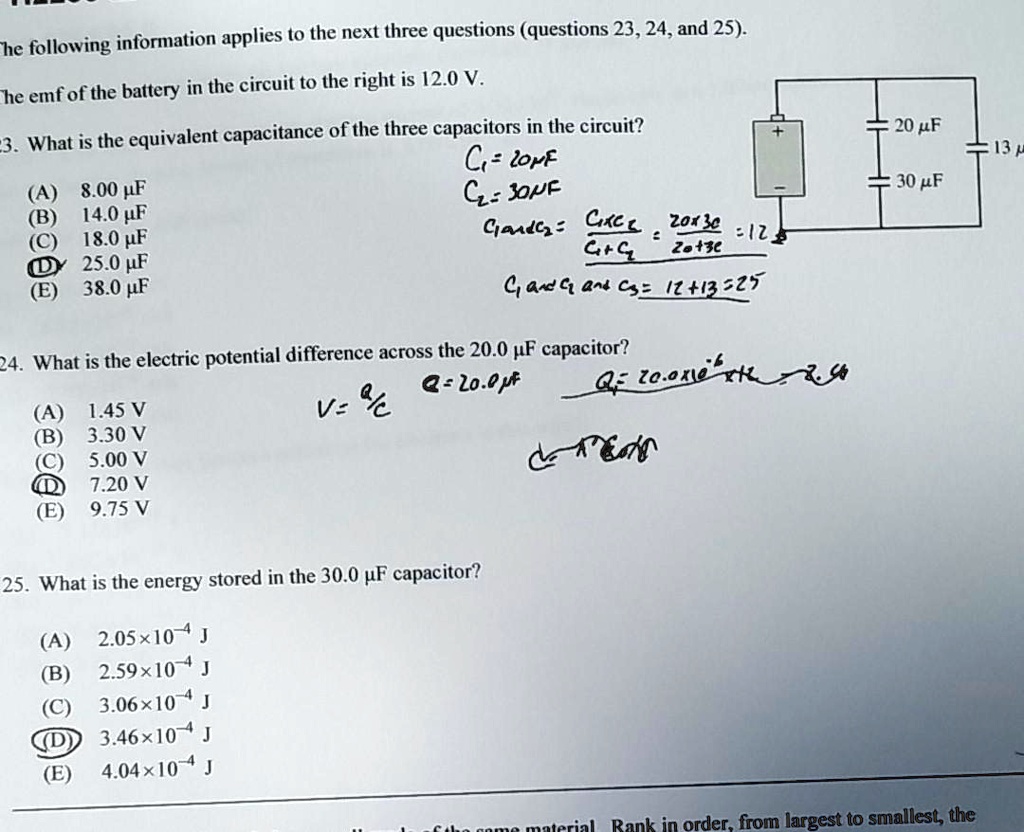 he following information applies to the next three questions (questions 23, 24, and 25).
he emf of the battery in the circuit to the right is 12.0 V.
3. What is the equivalent capacitance of the three capacitors in the circuit?
(A) 8.00 μF
(B) 14.0 μF
(C) 18.0 μF
(D) 25.0 μF
(E) 38.0 μF
C₁ = 20μF
C₂ = 30μF
C₁ and C₂ = C₁xC₂ / C₁+C₂ = 20x30 / 20+30 = 12
C₁ and C₂ and C₃ = 12+13=25
+
−
20 μF
30 μF
13 μ
24. What is the electric potential difference across the 20.0 μF capacitor?
(A) 1.45 V
(B) 3.30 V
(C) 5.00 V
(D) 7.20 V
(E) 9.75 V
V = Q/C
Q = 20.0 μF
Q = 20.0x10⁻⁶
25. What is the energy stored in the 30.0 μF capacitor?
(A) 2.05×10⁻⁴ J
(B) 2.59×10⁻⁴ J
(C) 3.06×10⁻⁴ J
(D) 3.46×10⁻⁴ J
(E) 4.04×10⁻⁴ J
of the same material Rank in order, from largest to smallest, the